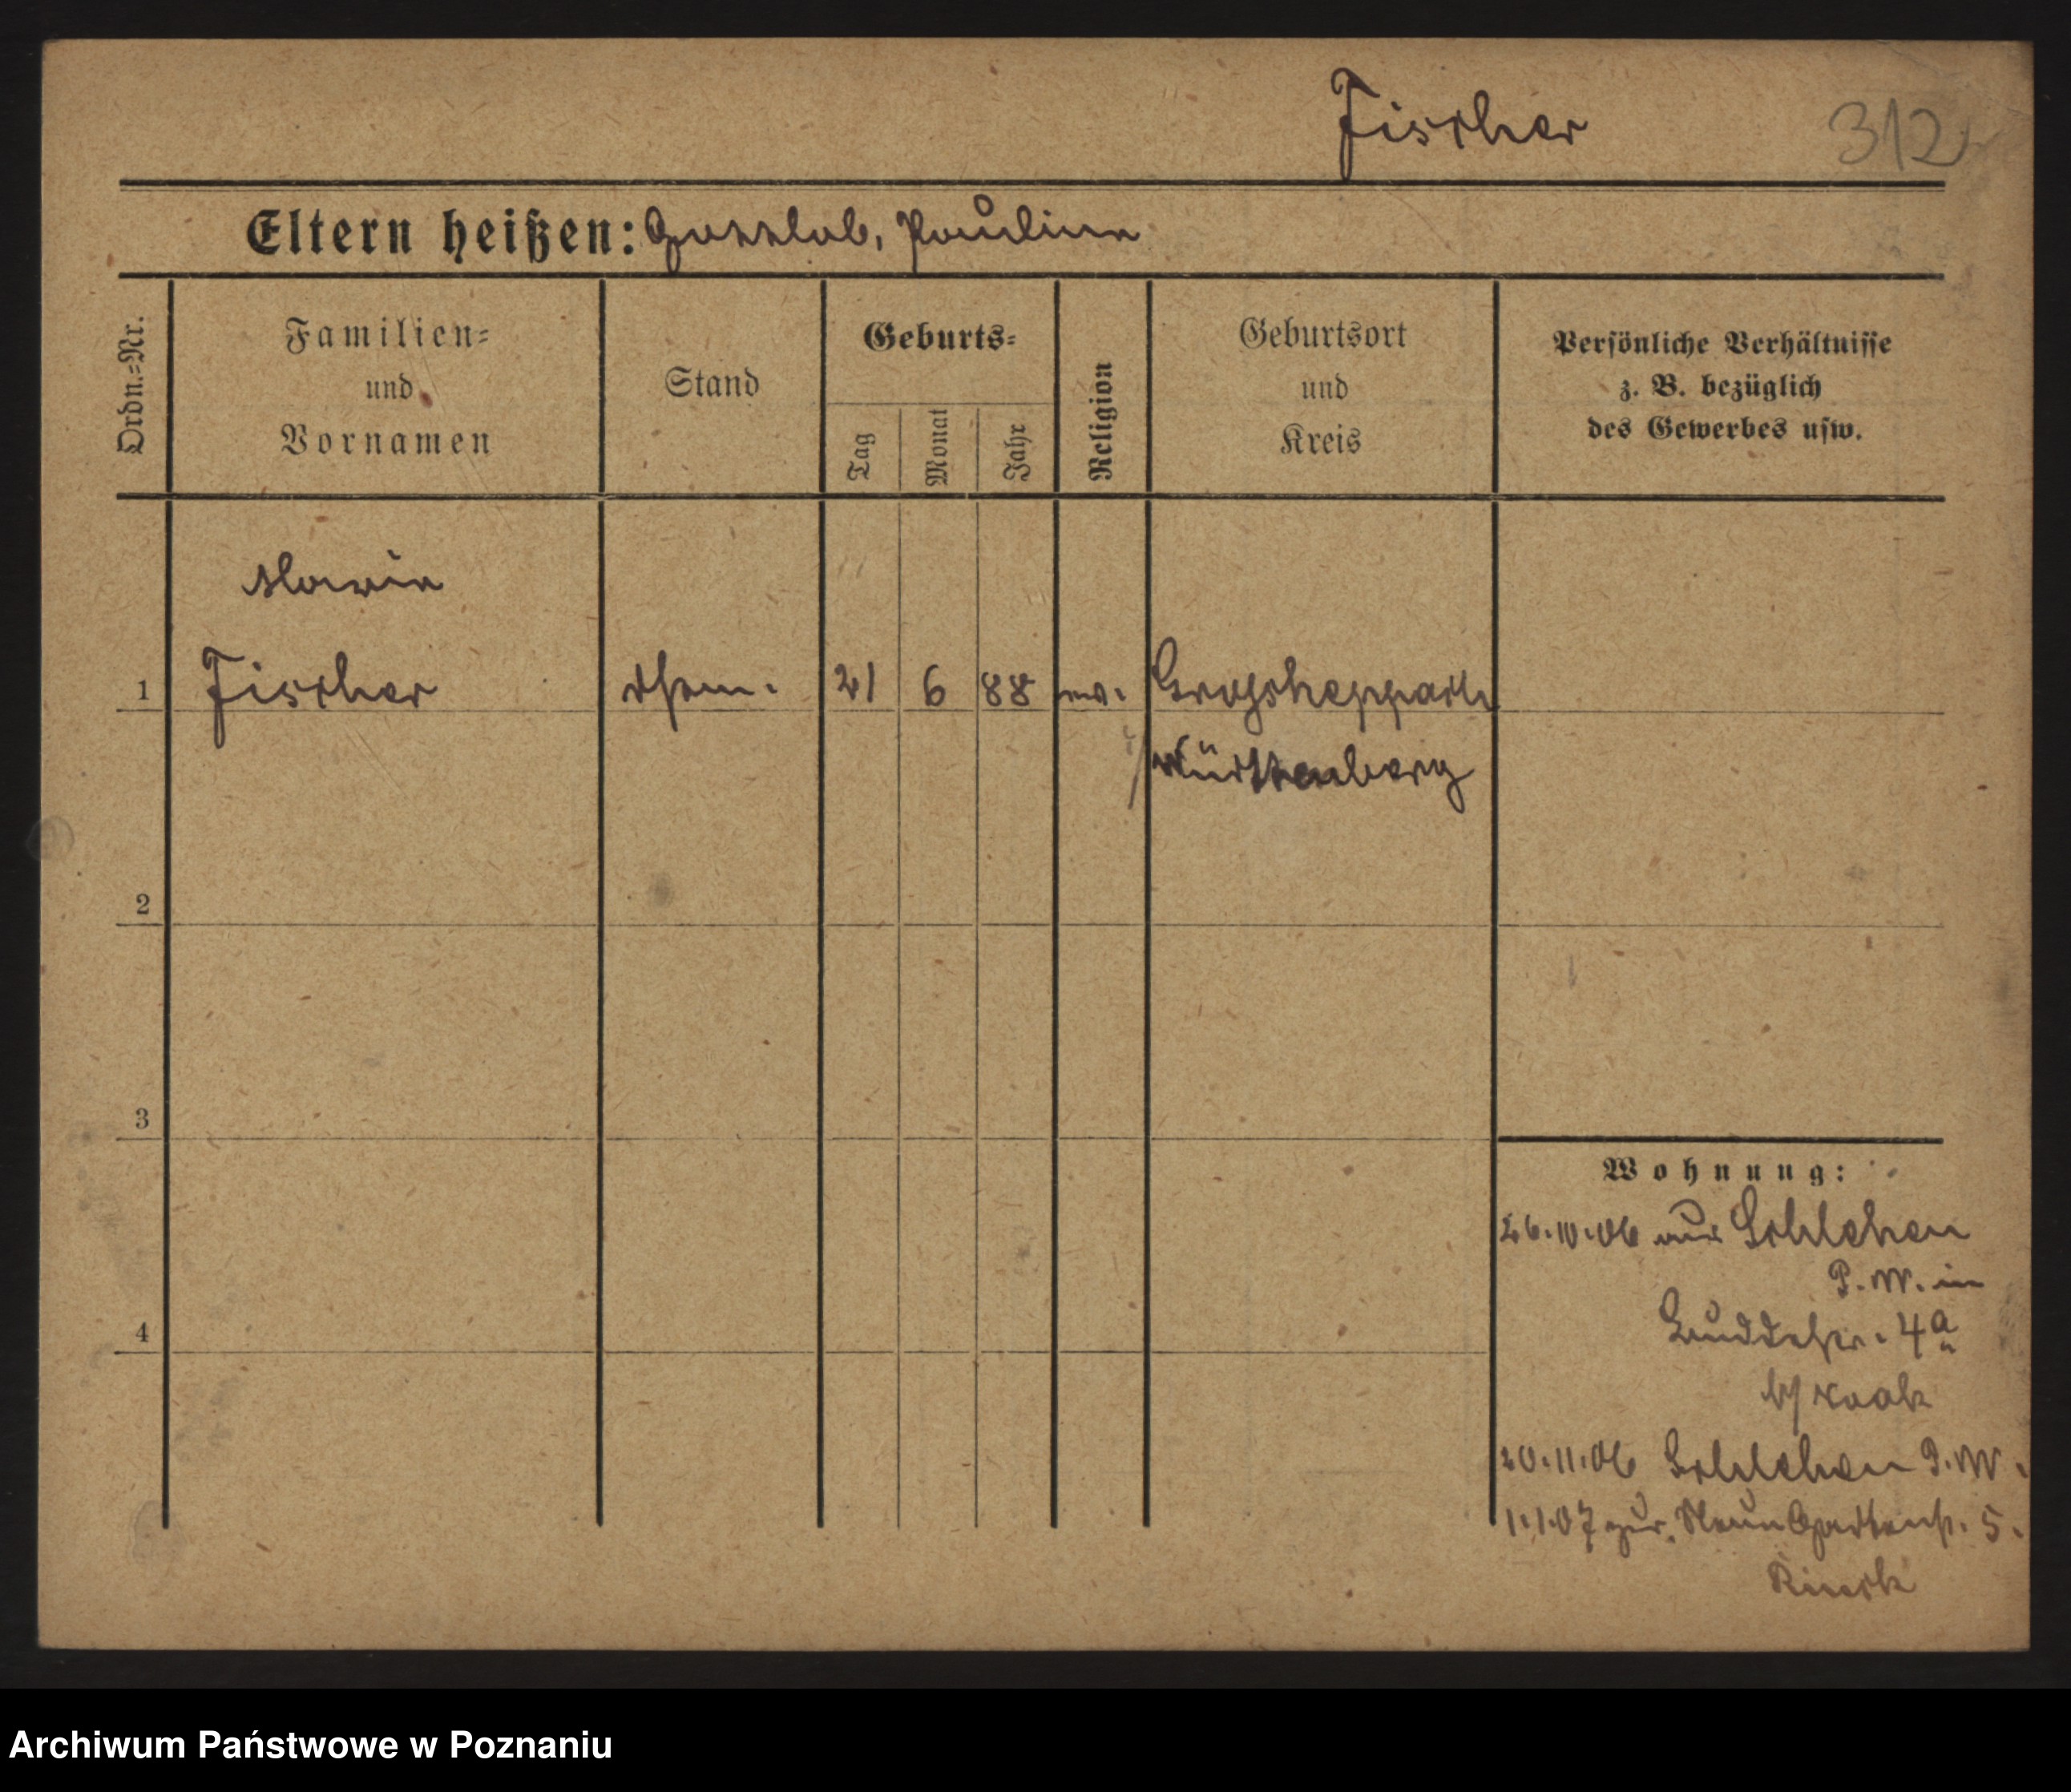 Fischer 312
Eltern heißen: Gottlob, Pauline
Ordn.-Nr.
Familien-
und
Vornamen
Stand
Geburts-
Tag
Monat
Jahr
Religion
Geburtsort
und
Kreis
Persönliche Verhältnisse
z. B. bezüglich
des Gewerbes usw.
Marie
1 Fischer 21 6 88 ev. Grossheppach
Württemberg
2
3
4
Wohnung:
26.10.06 aus Schlehen
P.W. in
Buddestr. 4a
b/
20.11.06 Schlehen P.W.
1.1.07 zur. Neue Gartenstr. 5.
Archiwum Państwowe w Poznaniu